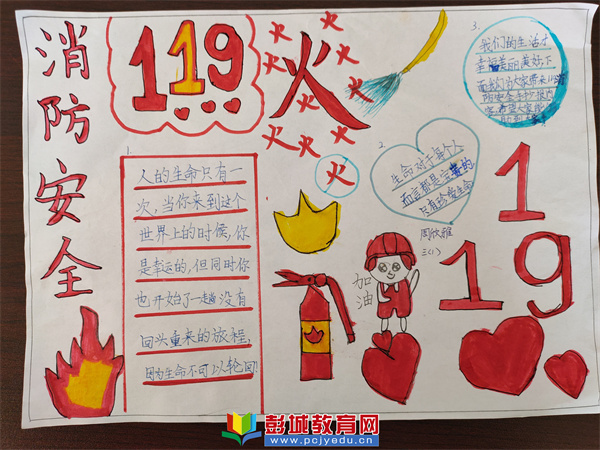 消防安全
119
火
火
火
火
火
火
火
火
火
火
火
1.
人的生命只有一
次,当你来到这个
世界上的时候,你
是幸运的,但同时你
也开始了一趟没有
回头重来的放程,
因为生命不可以轮回!
2.
生命对于每个人
而言都是宝贵的,
只有珍爱生命
周欣雅
三(1)
3.
我们的生活才
幸福美丽美好,下
面我们当大家带来119消
加油
119
彭城教育网
www.pcjyedu.cn